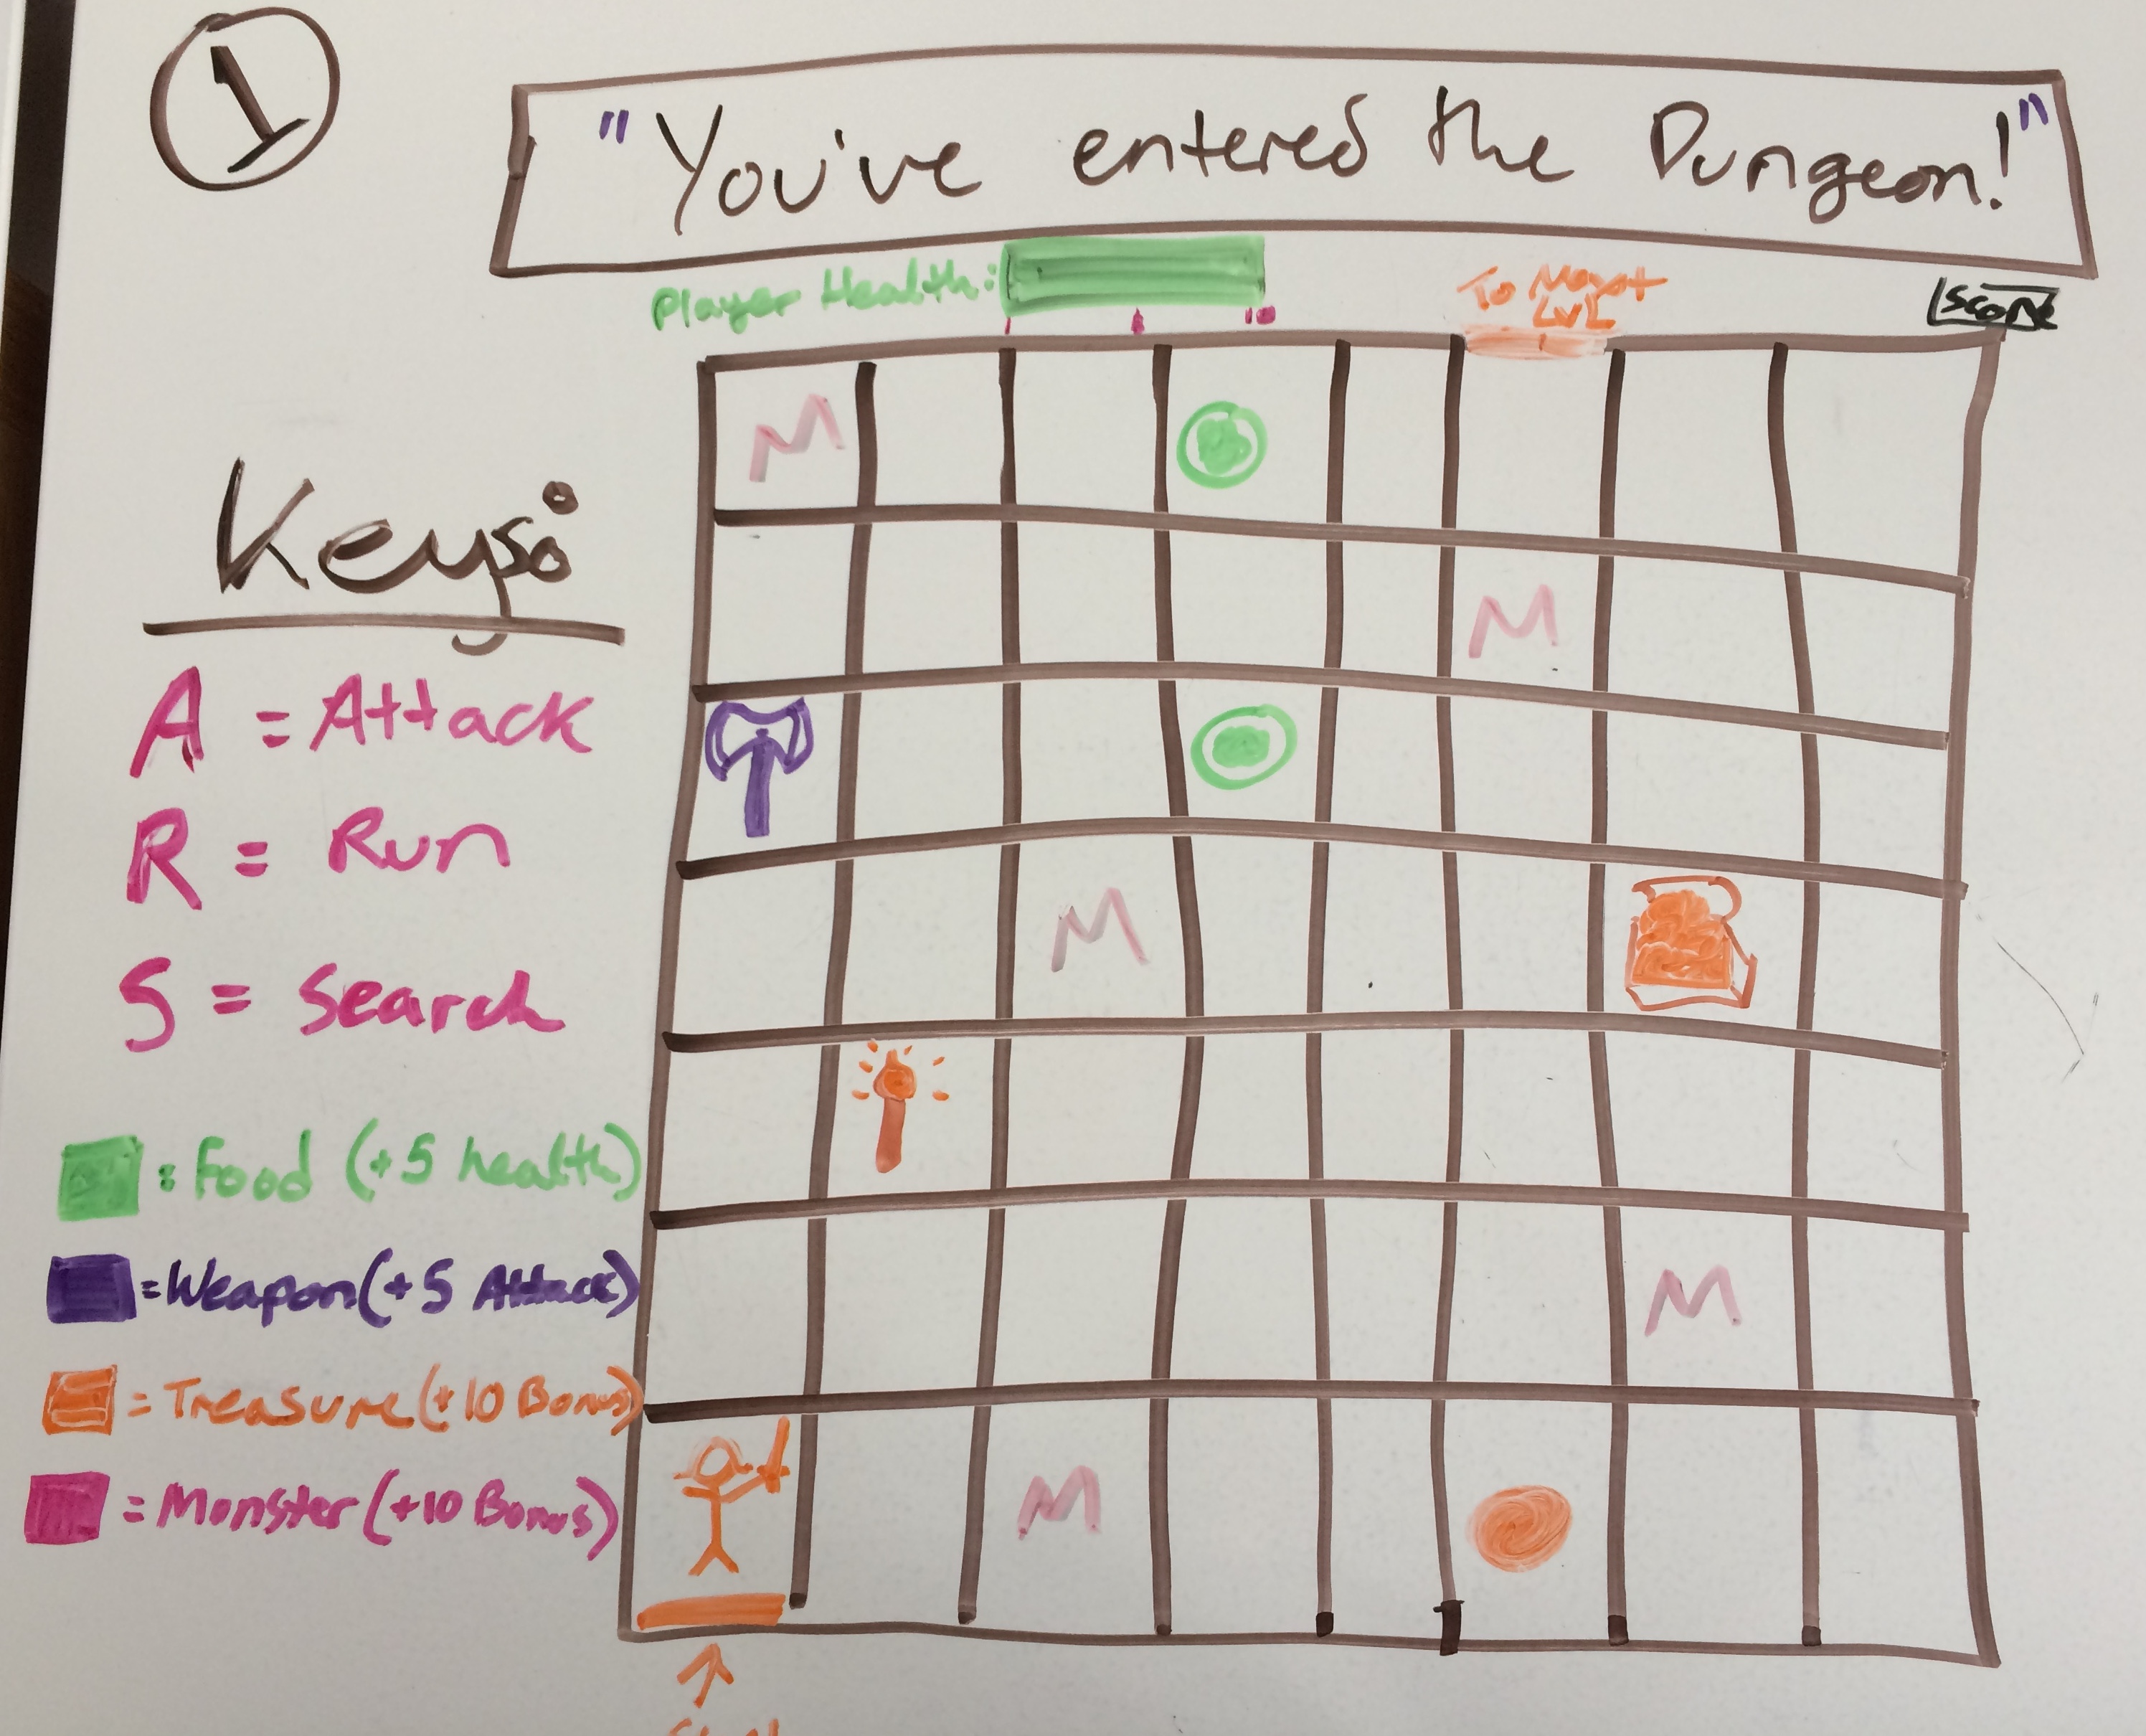 1
"You've entered the Dungeon!"
Player Health:
To Next
LVL
Score
Keys:
A = Attack
R = Run
S = Search
: Food (+5 health)
= Weapon (+5 Attack)
= Treasure (+10 Bonus)
= Monster (+10 Bonus)
M
M
M
M
M